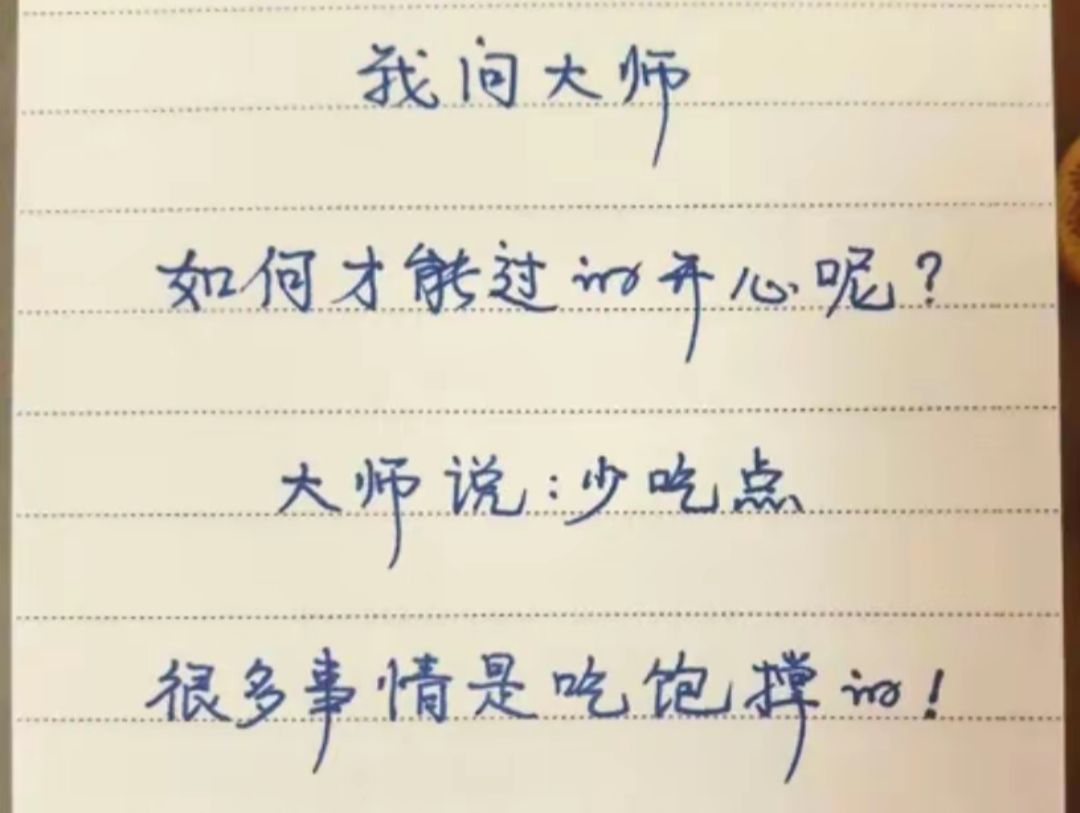 我问大师
如何才能过的开心呢？
大师说：少吃点
很多事情是吃饱撑的！